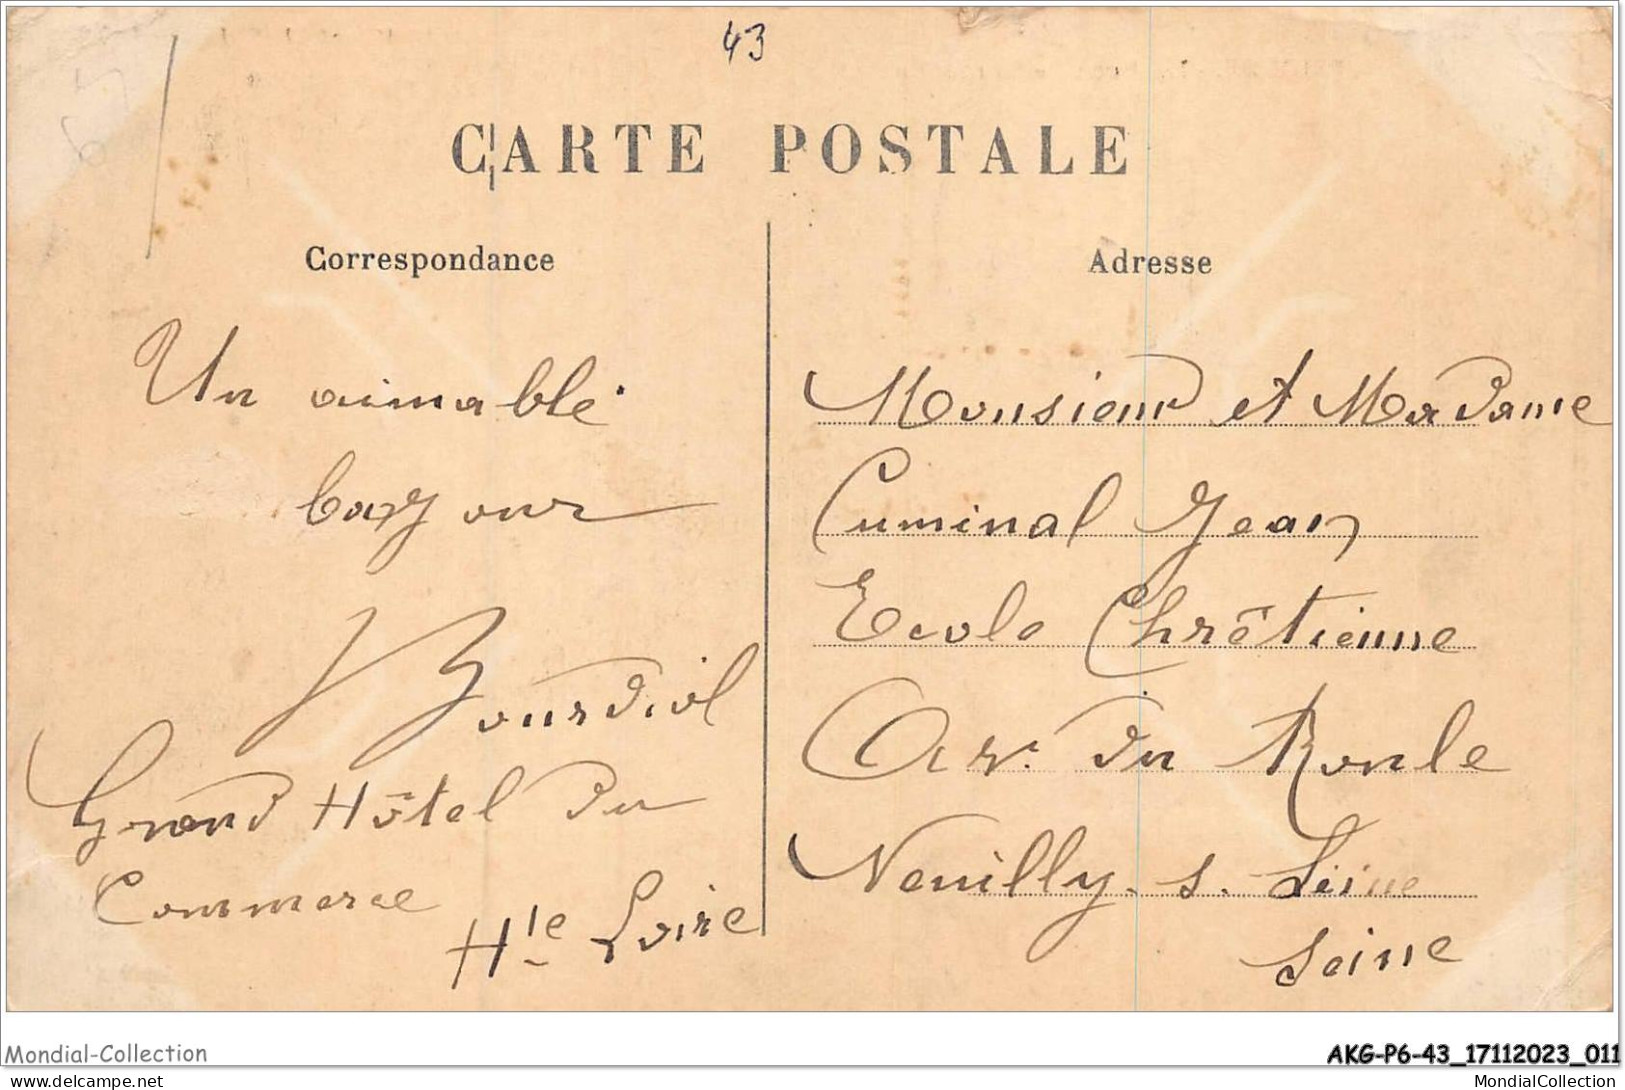 43
CARTE POSTALE
Correspondance
Un aimable
bonjour
Bourdiol
Grand Hôtel du
Commerce
Hte Loire
Adresse
Monsieur et Madame
Cuminal Jean
Ecole Chrêtienne
Av. du Roule
Neuilly. s. Seine
Seine
Mondial-Collection
AKG-P6-43_17112023_011
delcampe.net
MondialCollection